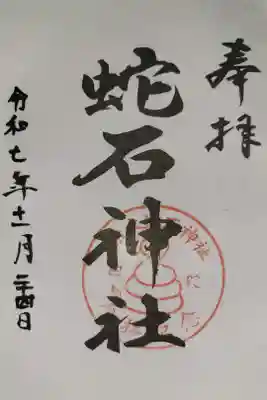 奉拝
蛇石神社
令和七年十一月二十四日
神社